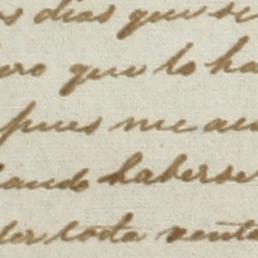 s dias que se
ero que lo ha
pues me au
ando haberse
der toda venta